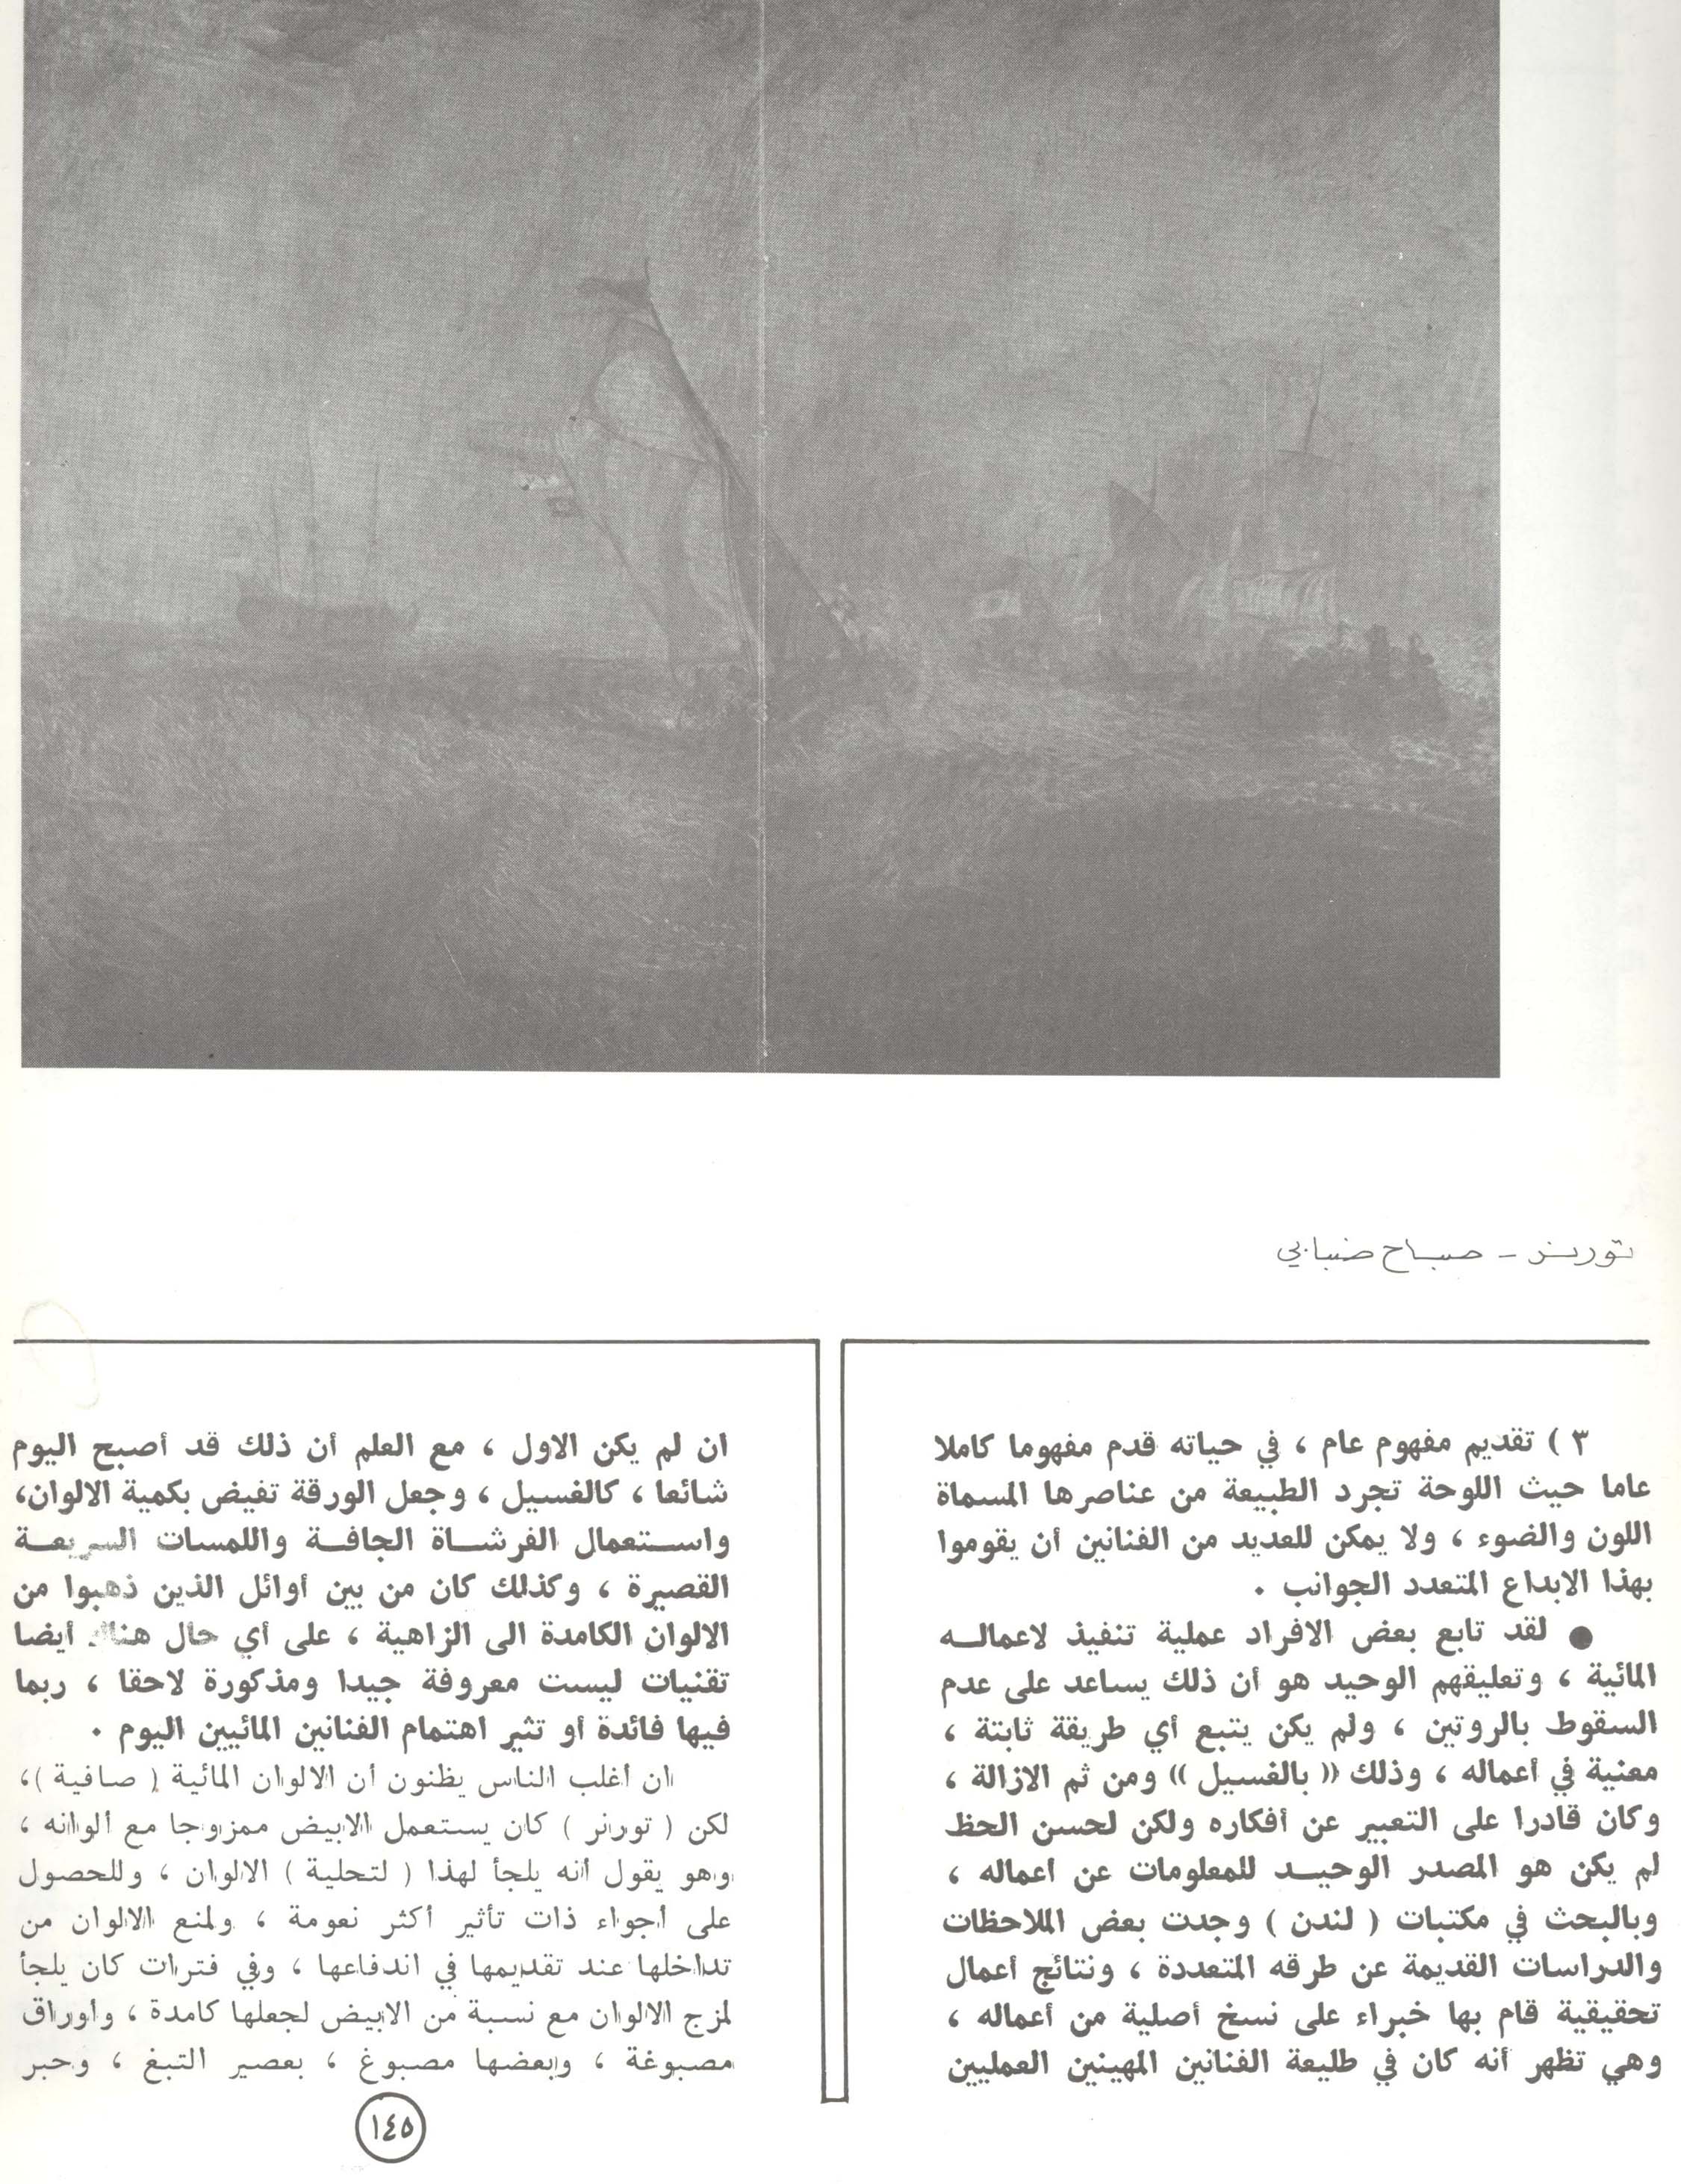 تورنر - صباح ضبابي
٣ ) تقديم مفهوم عام ، في حياته قدم مفهوما كاملا
عاما حيث اللوحة تجرد الطبيعة من عناصرها المسماة
اللون والضوء ، ولا يمكن للعديد من الفنانين أن يقوموا
بهذا الابداع المتعدد الجوانب .
● لقد تابع بعض الافراد عملية تنفيذ لاعمالـه
المائية ، وتعليقهم الوحيد هو أن ذلك يساعد على عدم
السقوط بالروتين ، ولم يكن يتبع أي طريقة ثابتة ،
معنية في أعماله ، وذلك (( بالغسيل )) ومن ثم الازالة ،
وكان قادرا على التعبير عن أفكاره ولكن لحسن الحظ
لم يكن هو المصدر الوحيـد للمعلومات عن اعماله ،
وبالبحث في مكتبات ( لندن ) وجدت بعض الملاحظات
والدراسات القديمة عن طرقه المتعددة ، ونتائج أعمال
تحقيقية قام بها خبراء على نسخ أصلية من أعماله ،
وهي تظهر أنه كان في طليعة الفنانين المهينين العمليين
ان لم يكن الاول ، مع العلم أن ذلك قد أصبح اليوم
شائعا ، كالغسيل ، وجعل الورقة تفيض بكمية الالوان،
واسـتعمال الفرشـاة الجافـة واللمسات السريعـة
القصيرة ، وكذلك كان من بين أوائل الذين ذهبوا من
الالوان الكامدة الى الزاهية ، على أي حال هناك أيضا
تقنيات ليست معروفة جيدا ومذكورة لاحقا ، ربما
فيها فائدة أو تثير اهتمام الفنانين المائيين اليوم .
ان أغلب الناس يظنون أن الالوان المائية ( صافية )،
لكن ( تورنر ) كان يستعمل الابيض ممزوجا مع ألوانه ،
وهو يقول انه يلجأ لهذا ( لتحلية ) الالوان ، وللحصول
على أجواء ذات تأثير أكثر نعومة ، ولمنع الالوان من
تداخلها عند تقديمها في اندفاعها ، وفي فترات كان يلجأ
لمزج الالوان مع نسبة من الابيض لجعلها كامدة ، وأوراق
مصبوغة ، وبعضها مصبوغ ، بعصير التبغ ، وحبر
١٤٥